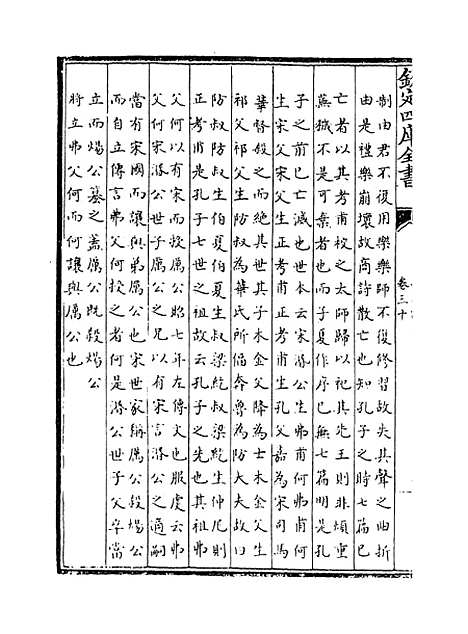 欽定四庫全書
卷三十
制由君不復用樂樂師不復修習故失其聲之曲折
由是禮樂崩壞故商詩散亡也知孔子之時七篇已
亡者以其考甫校之太師歸以祀其先王則非煩重
蕪穢不是可棄者也而子夏作序已無七篇明是孔
子之前已亡滅也世本云宋湣公生弗甫何弗甫何
生宋父宋父生正考甫正考甫生孔父嘉為宋司馬
華督殺之而絶其世其子木金父降為士木金父生
祁父祁父生防叔為華氏所偪奔魯為防大夫故曰
防叔防叔生伯夏伯夏生叔梁紇叔梁紇生仲尼則
正考甫是孔子七世之祖故云孔子之先也其祖弗
父何以有宋而授厲公昭七年左傳文也服虔云弗
父何宋湣公世子厲公之兄以有宋言湣公之適嗣
當有宋國而讓與弟厲公也宋世家稱厲公殺煬公
而自立傳言弗父何授之者何是湣公世子父卒當
立而煬公簒之蓋厲公既殺煬公
將立弗父何而何讓與厲公也